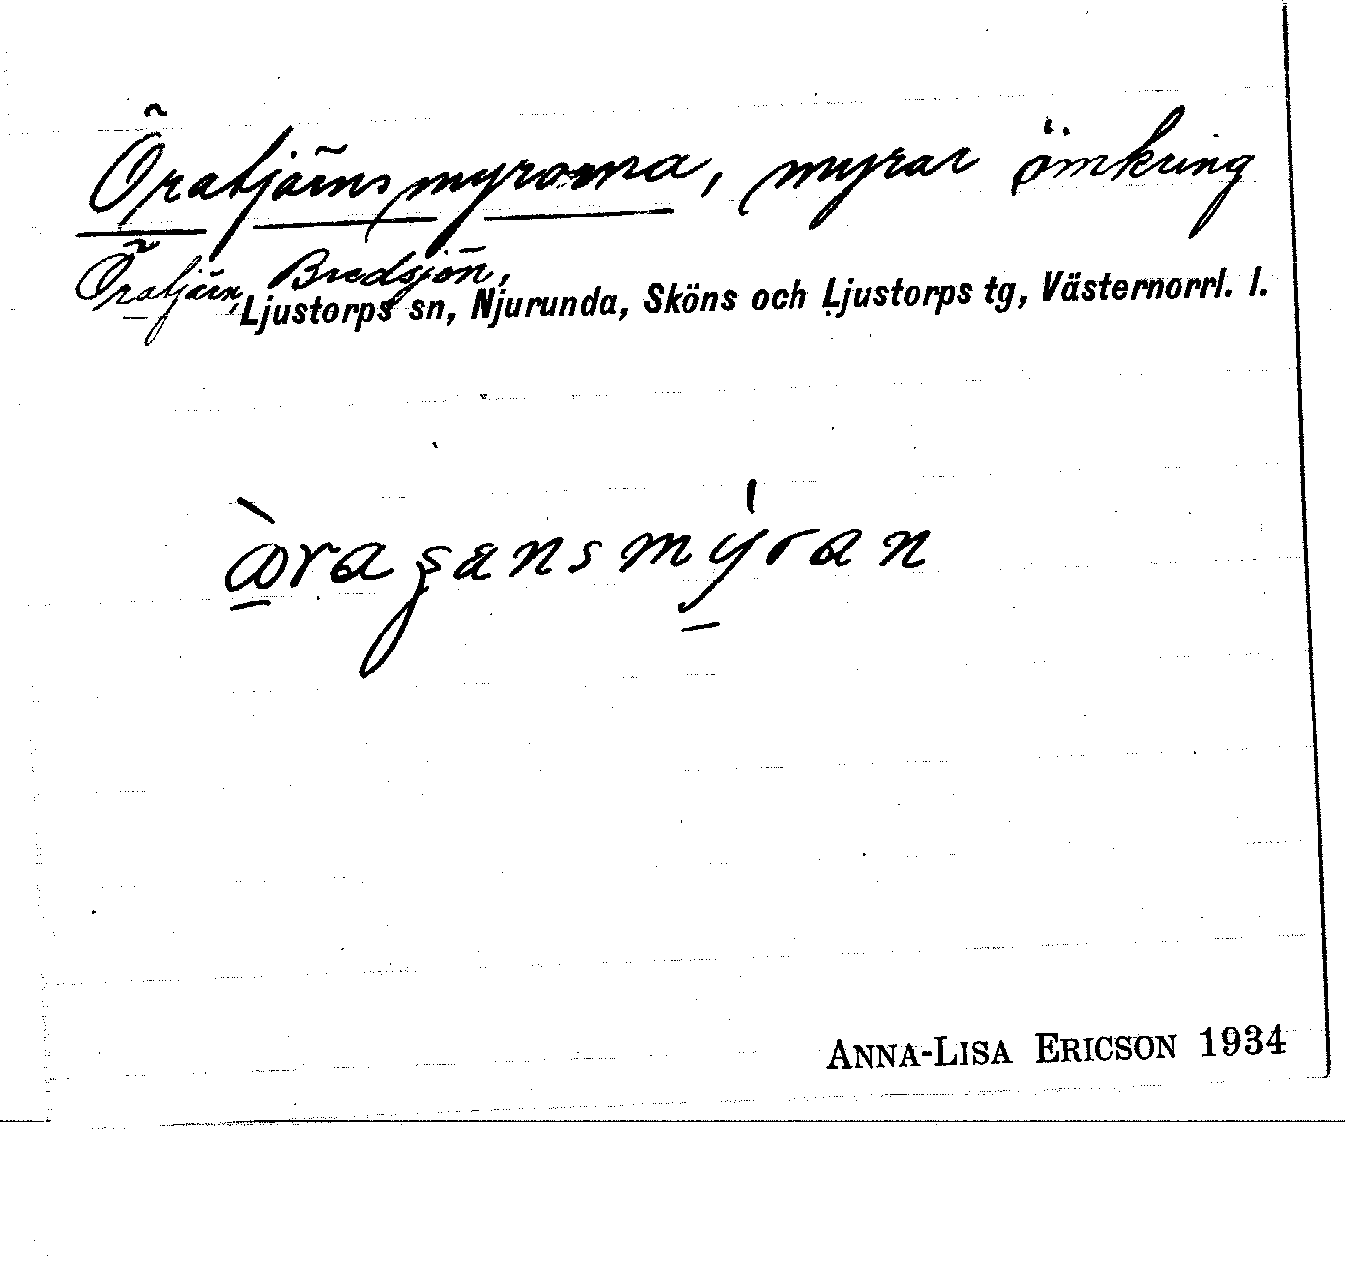 Öratjärnsmyrorna, myrar omkring
Öratjärn, Bredsjön,
Ljustorps sn, Njurunda, Sköns och Ljustorps tg, Västernorrl. l.
ANNA-LISA ERICSON 1934